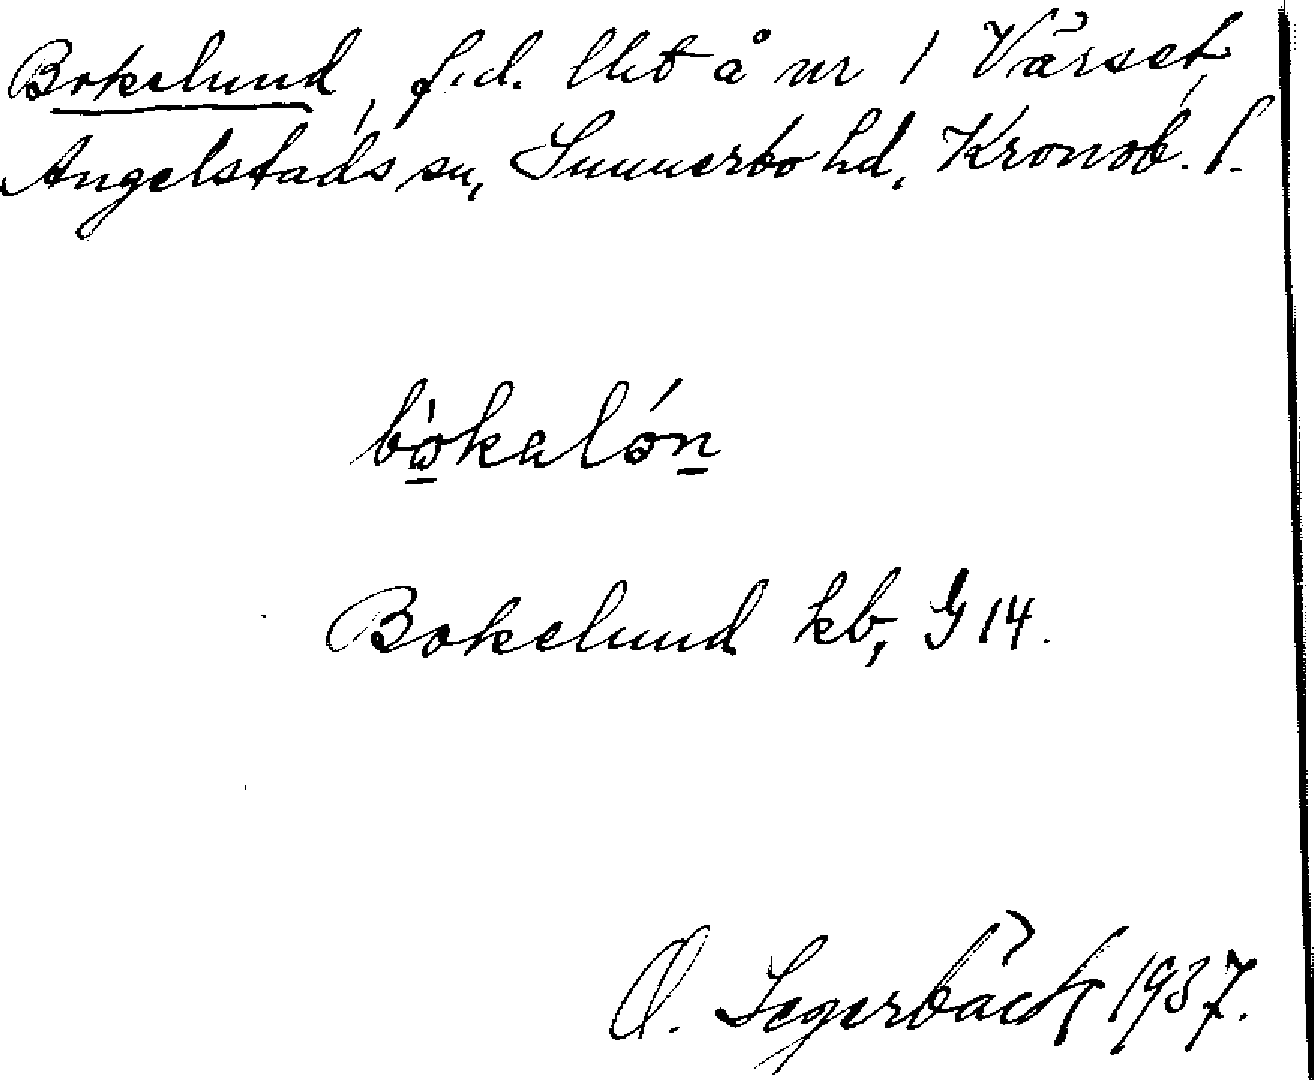 Bokelund, f.d. lht å nr 1 Värset,
Angelstads sn, Sunnerbo hd, Kronob. l.
bòkalón
Bokelund kb, G 14.
O. Segerbäck 1937.